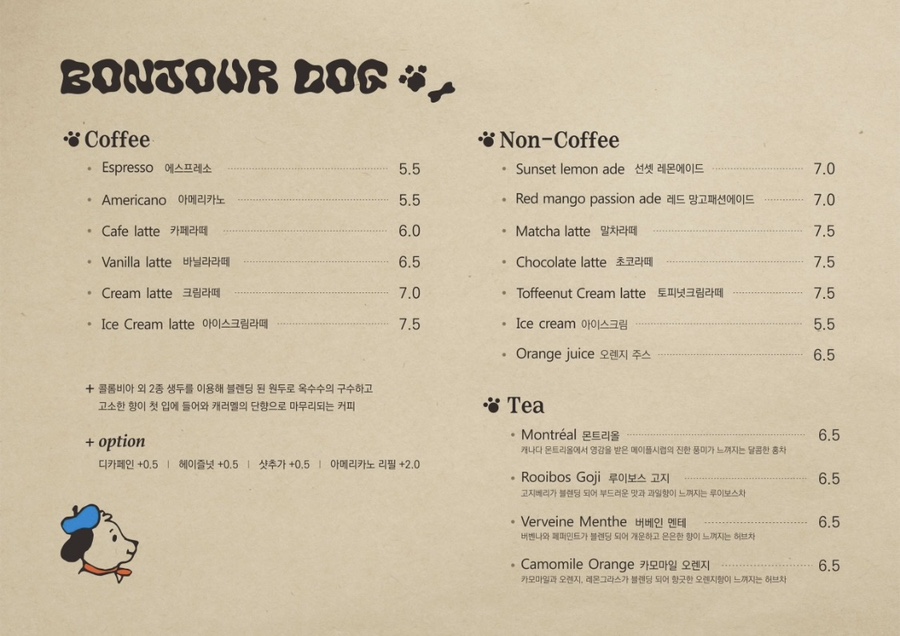 BONJOUR DOG
Coffee
Espresso 에스프레소 5.5
Americano 아메리카노 5.5
Cafe latte 카페라떼 6.0
Vanilla latte 바닐라라떼 6.5
Cream latte 크림라떼 7.0
Ice Cream latte 아이스크림라떼 7.5
+ 콜롬비아 외 2종 생두를 이용해 블렌딩 된 원두로 옥수수의 구수하고
고소한 향이 첫 입에 들어와 캐러멜의 단향으로 마무리되는 커피
+ option
디카페인 +0.5 | 헤이즐넛 +0.5 | 샷추가 +0.5 | 아메리카노 리필 +2.0
Non-Coffee
Sunset lemon ade 선셋 레몬에이드 7.0
Red mango passion ade 레드 망고패션에이드 7.0
Matcha latte 말차라떼 7.5
Chocolate latte 초코라떼 7.5
Toffeenut Cream latte 토피넛크림라떼 7.5
Ice cream 아이스크림 5.5
Orange juice 오렌지 주스 6.5
Tea
Montréal 몬트리올 6.5
캐나다 몬트리올에서 영감을 받은 메이플시럽의 진한 풍미가 느껴지는 달콤한 홍차
Rooibos Goji 루이보스 고지 6.5
고지베리가 블렌딩 되어 부드러운 맛과 과일향이 느껴지는 루이보스차
Verveine Menthe 버베인 멘테 6.5
버벤나와 페퍼민트가 블렌딩 되어 개운하고 은은한 향이 느껴지는 허브차
Camomile Orange 카모마일 오렌지 6.5
카모마일과 오렌지, 레몬그라스가 블렌딩 되어 향긋한 오렌지향이 느껴지는 허브차